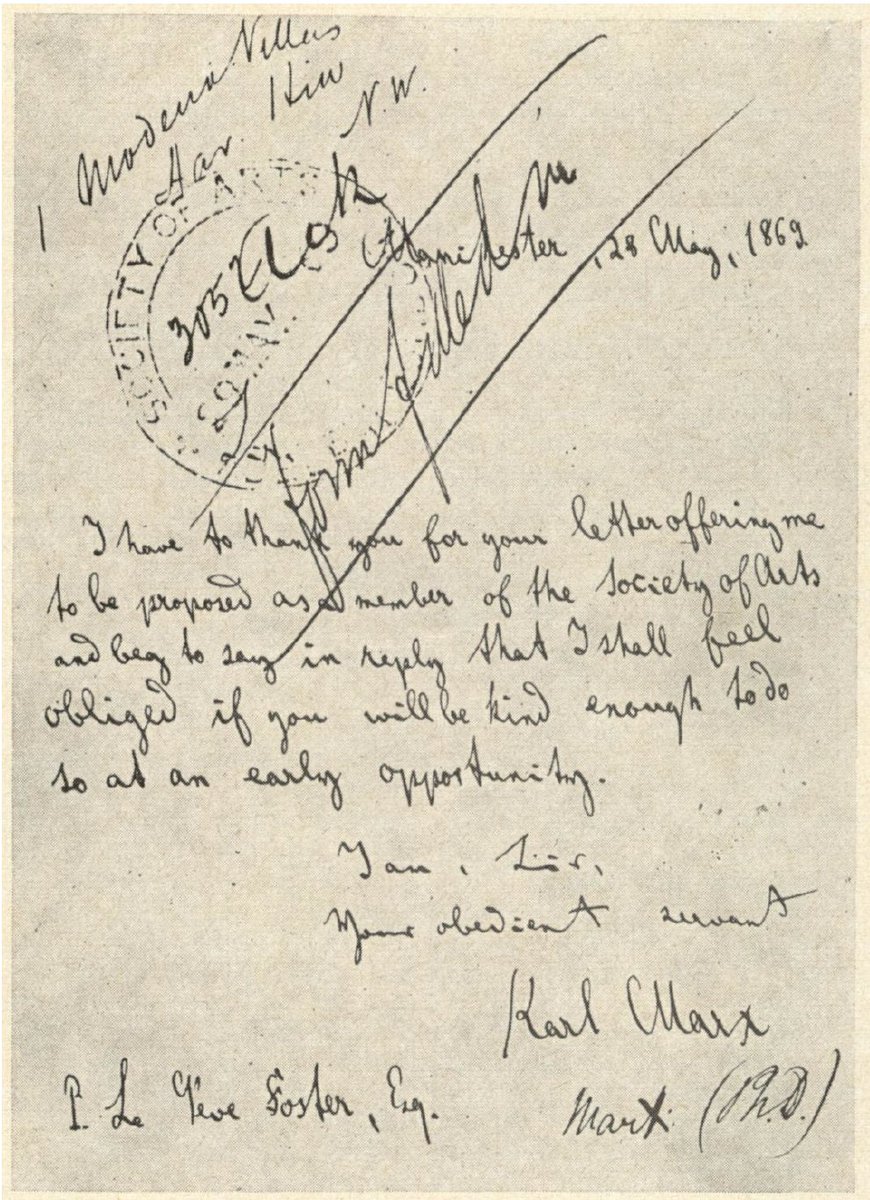 1 Modena Villas
Hav. Hill
N.W.
SOCIETY OF ARTS
3052
MAY
Manchester, 28 May, 1869
I have to thank you for your letter offering me
to be proposed as a member of the Society of Arts
and beg to say in reply that I shall feel
obliged if you will be kind enough to do
so at an early opportunity.
I am, Sir,
Your obedient servant
Karl Marx
P. Le Neve Foster, Esq.
Marx (Ph.D.)